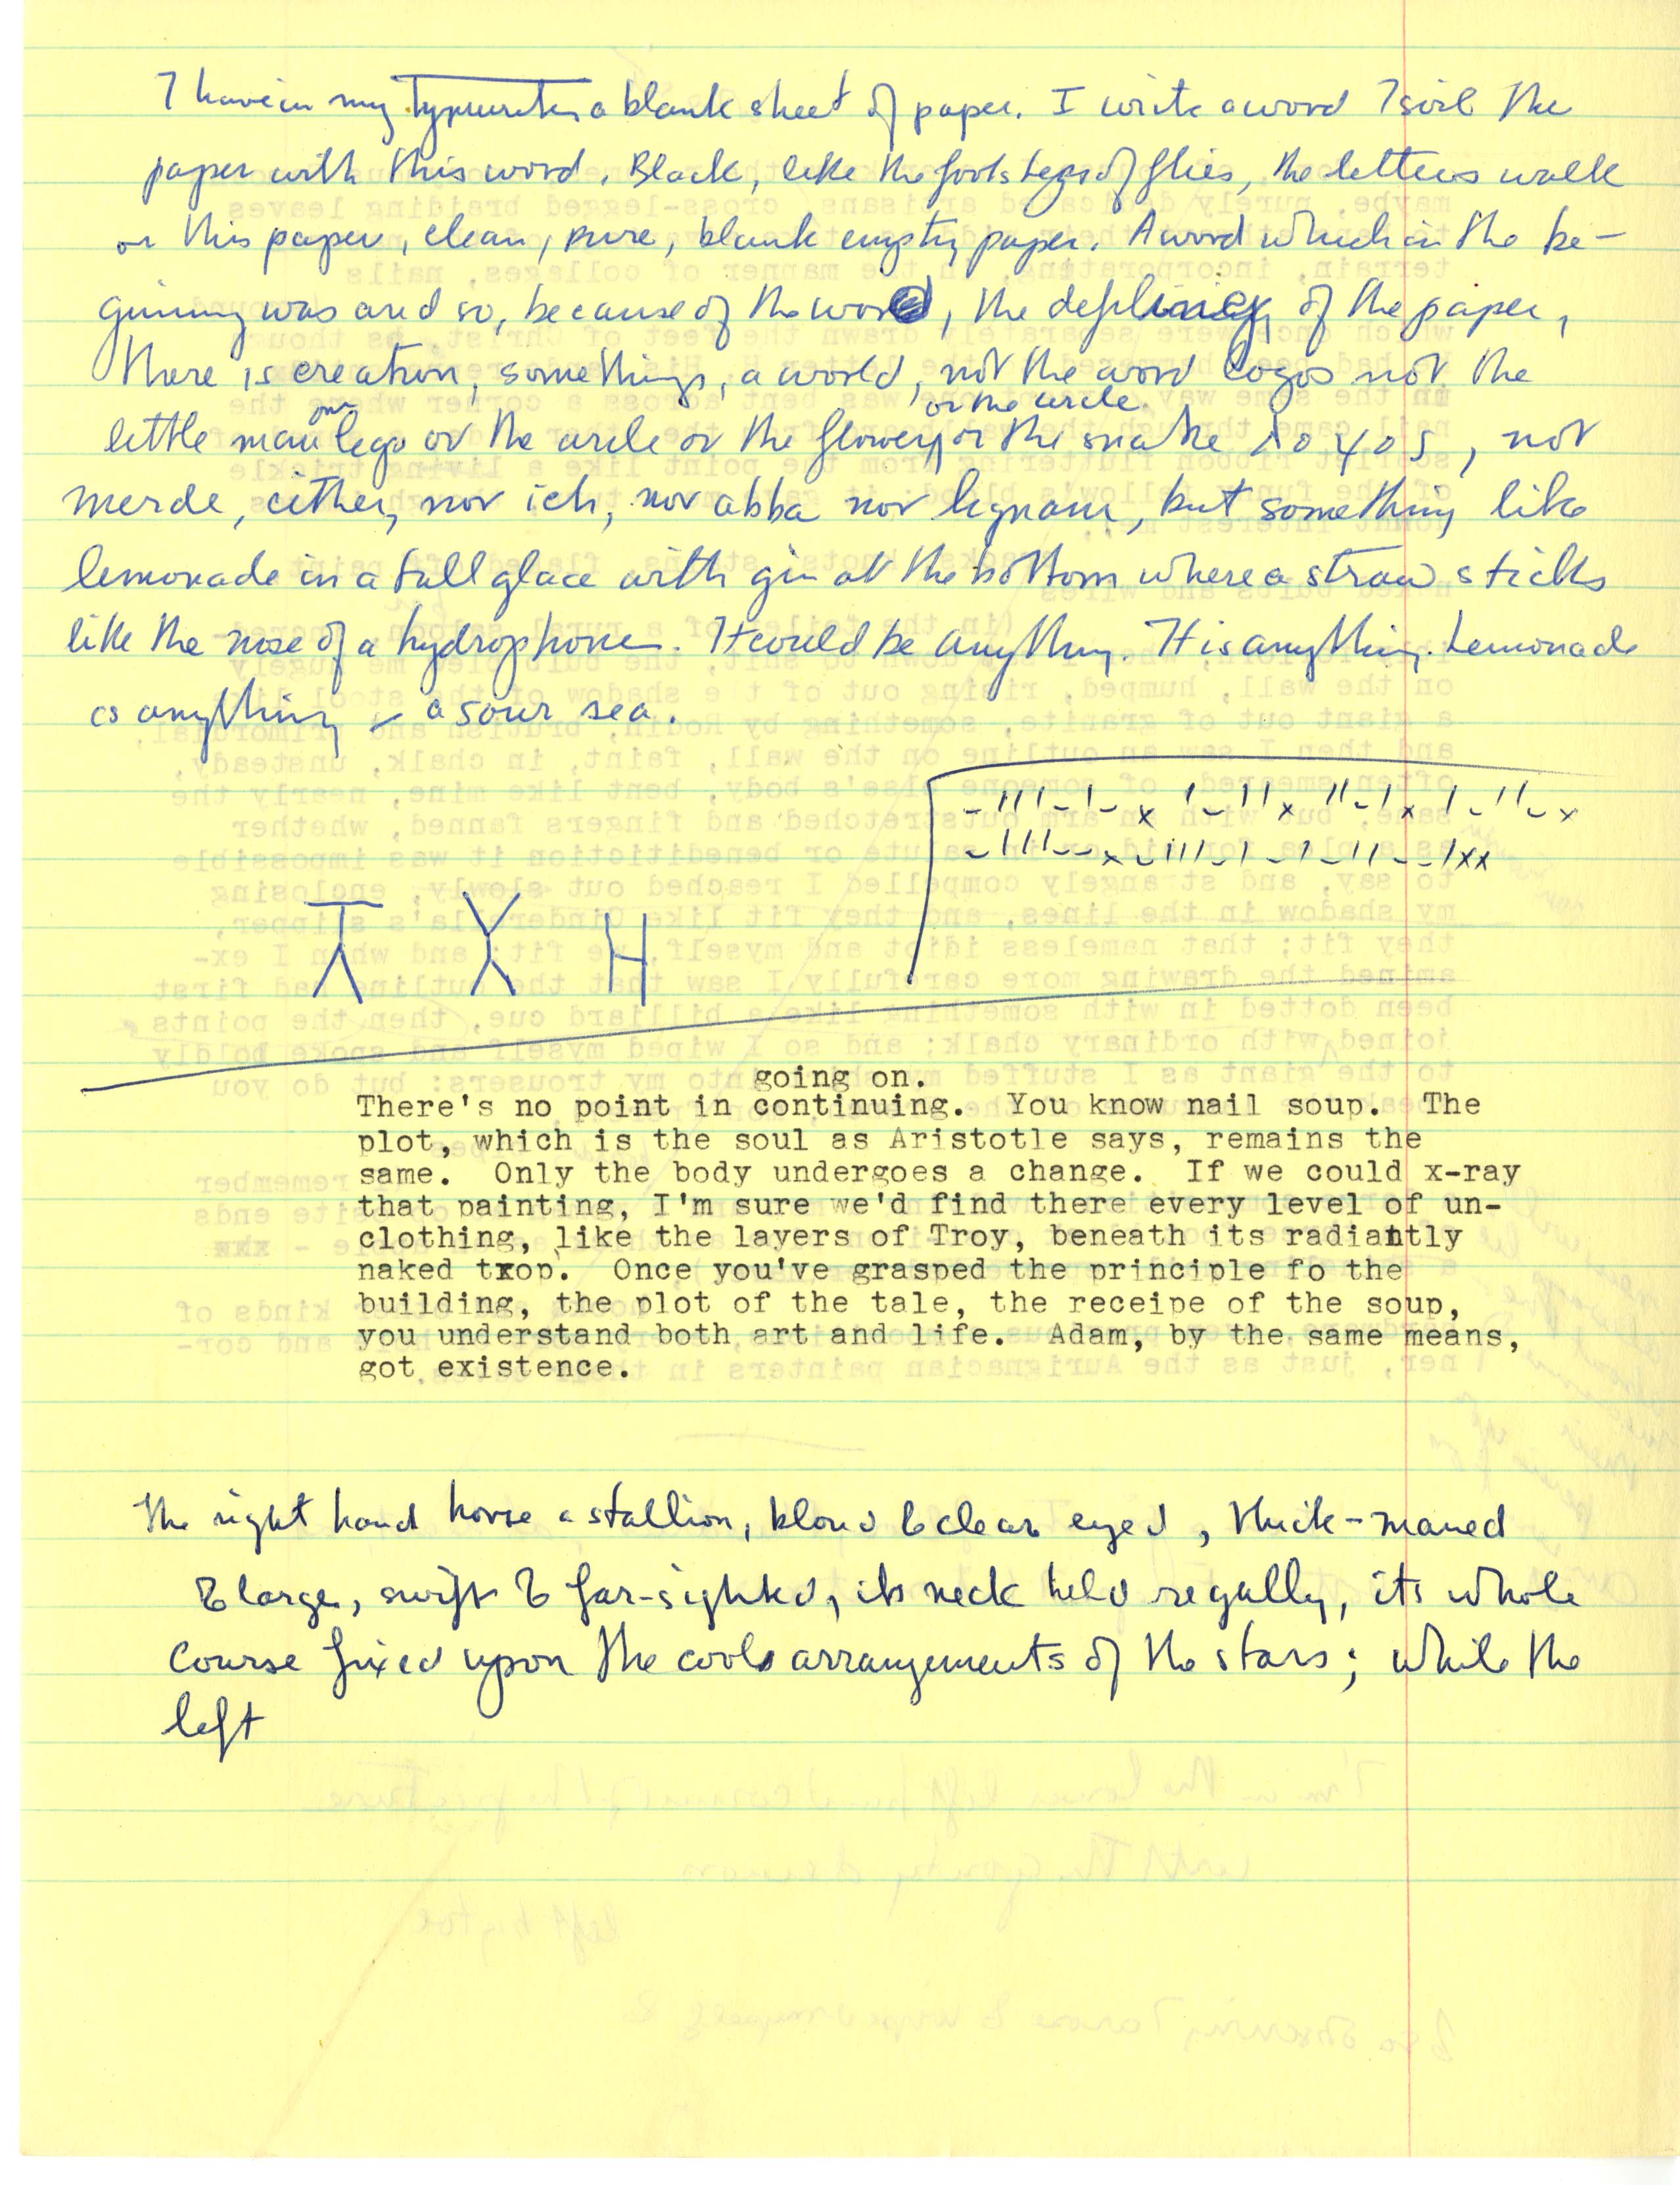 I have in my typewriter a blank sheet of paper. I write a word I soil the
paper with this word. Black, like the footsteps of flies, the letters walk
on this paper, clean, pure, blank empty paper. A word which in the be-
ginning was and so, because of the word, the of the paper,
there is creation, something, a world, not the word logos not the
or the circle
little man one lego or the circle or the flower, or the snake λογος, not
merde, either, nor ich, nor abba nor lignam, but something like
lemonade in a tall glace with gin at the bottom where a straw sticks
like the nose of a hydrophone. It could be anything. It is anything. Lemonade
is anything – a sour sea.
T Y H
going on.
There's no point in continuing. You know nail soup. The
plot, which is the soul as Aristotle says, remains the
same. Only the body undergoes a change. If we could x-ray
that painting, I'm sure we'd find there every level of un-
clothing, like the layers of Troy, beneath its radiantly
naked txop. Once you've grasped the principle fo the
building, the plot of the tale, the receipe of the soup,
you understand both art and life. Adam, by the same means,
got existence.
The right hand horse a stallion, blond & clear eyed, thick-maned
& large, swift & far-sighted, its neck held regally, its whole
course fixed upon the cool arrangements of the stars; while the
left